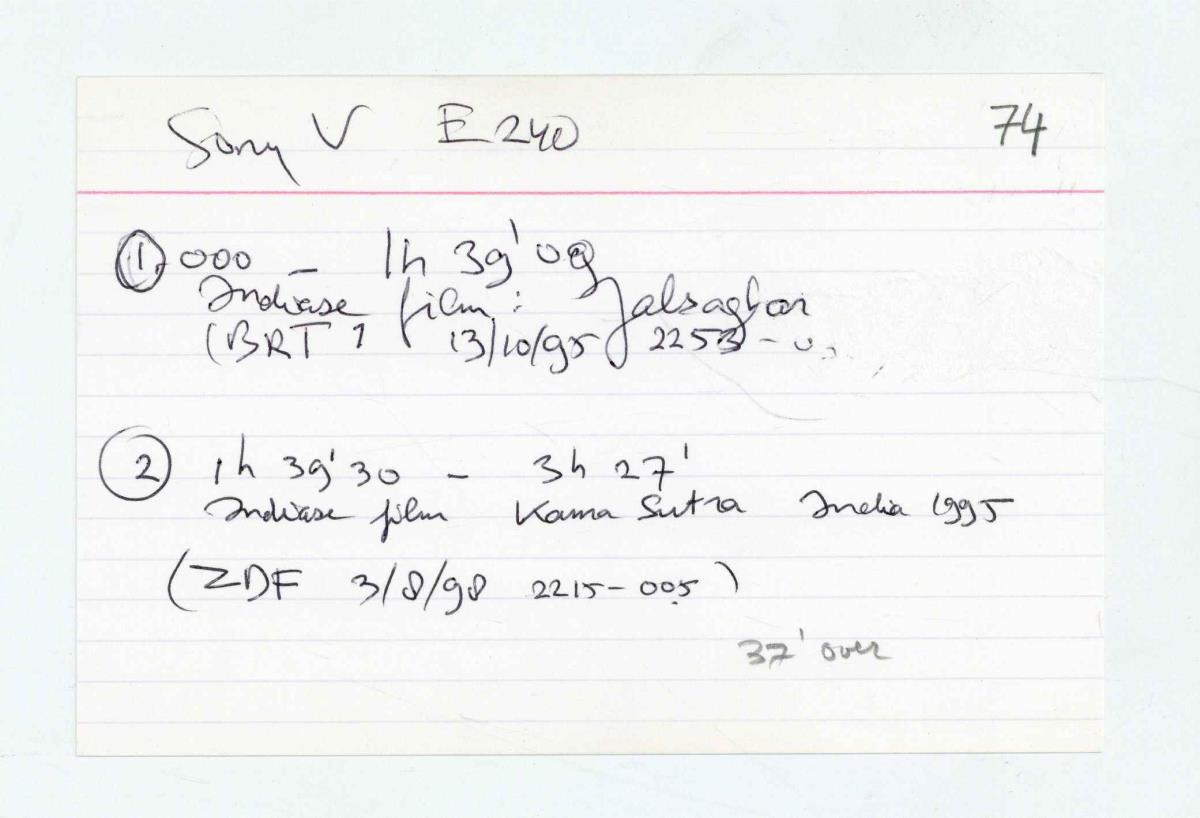 Sony V E240 74
1. 000 - 1h 39'09
Indiase film: Jalsaghar
(BRT 1 13/10/95 2253 - 0
2 1h 39'30 - 3h 27'
Indiase film Kama Sutra India 1995
(ZDF 3/8/98 2215-005)
37' over